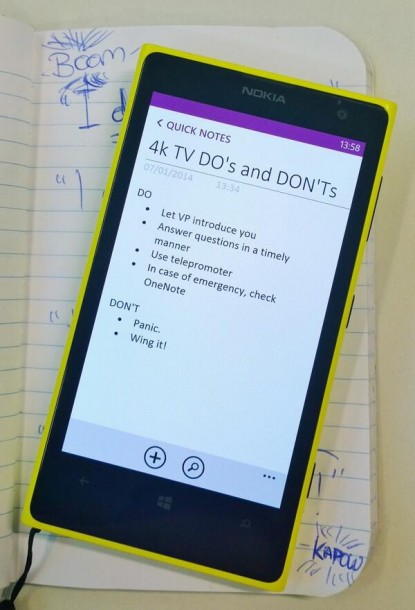 Boom
"I
NOKIA
13:58
< QUICK NOTES
4k TV DO's and DON'Ts
07/01/2014 13:34
DO
• Let VP introduce you
• Answer questions in a timely
manner
• Use telepromoter
• In case of emergency, check
OneNote
DON'T
• Panic.
• Wing it!
KAPOW